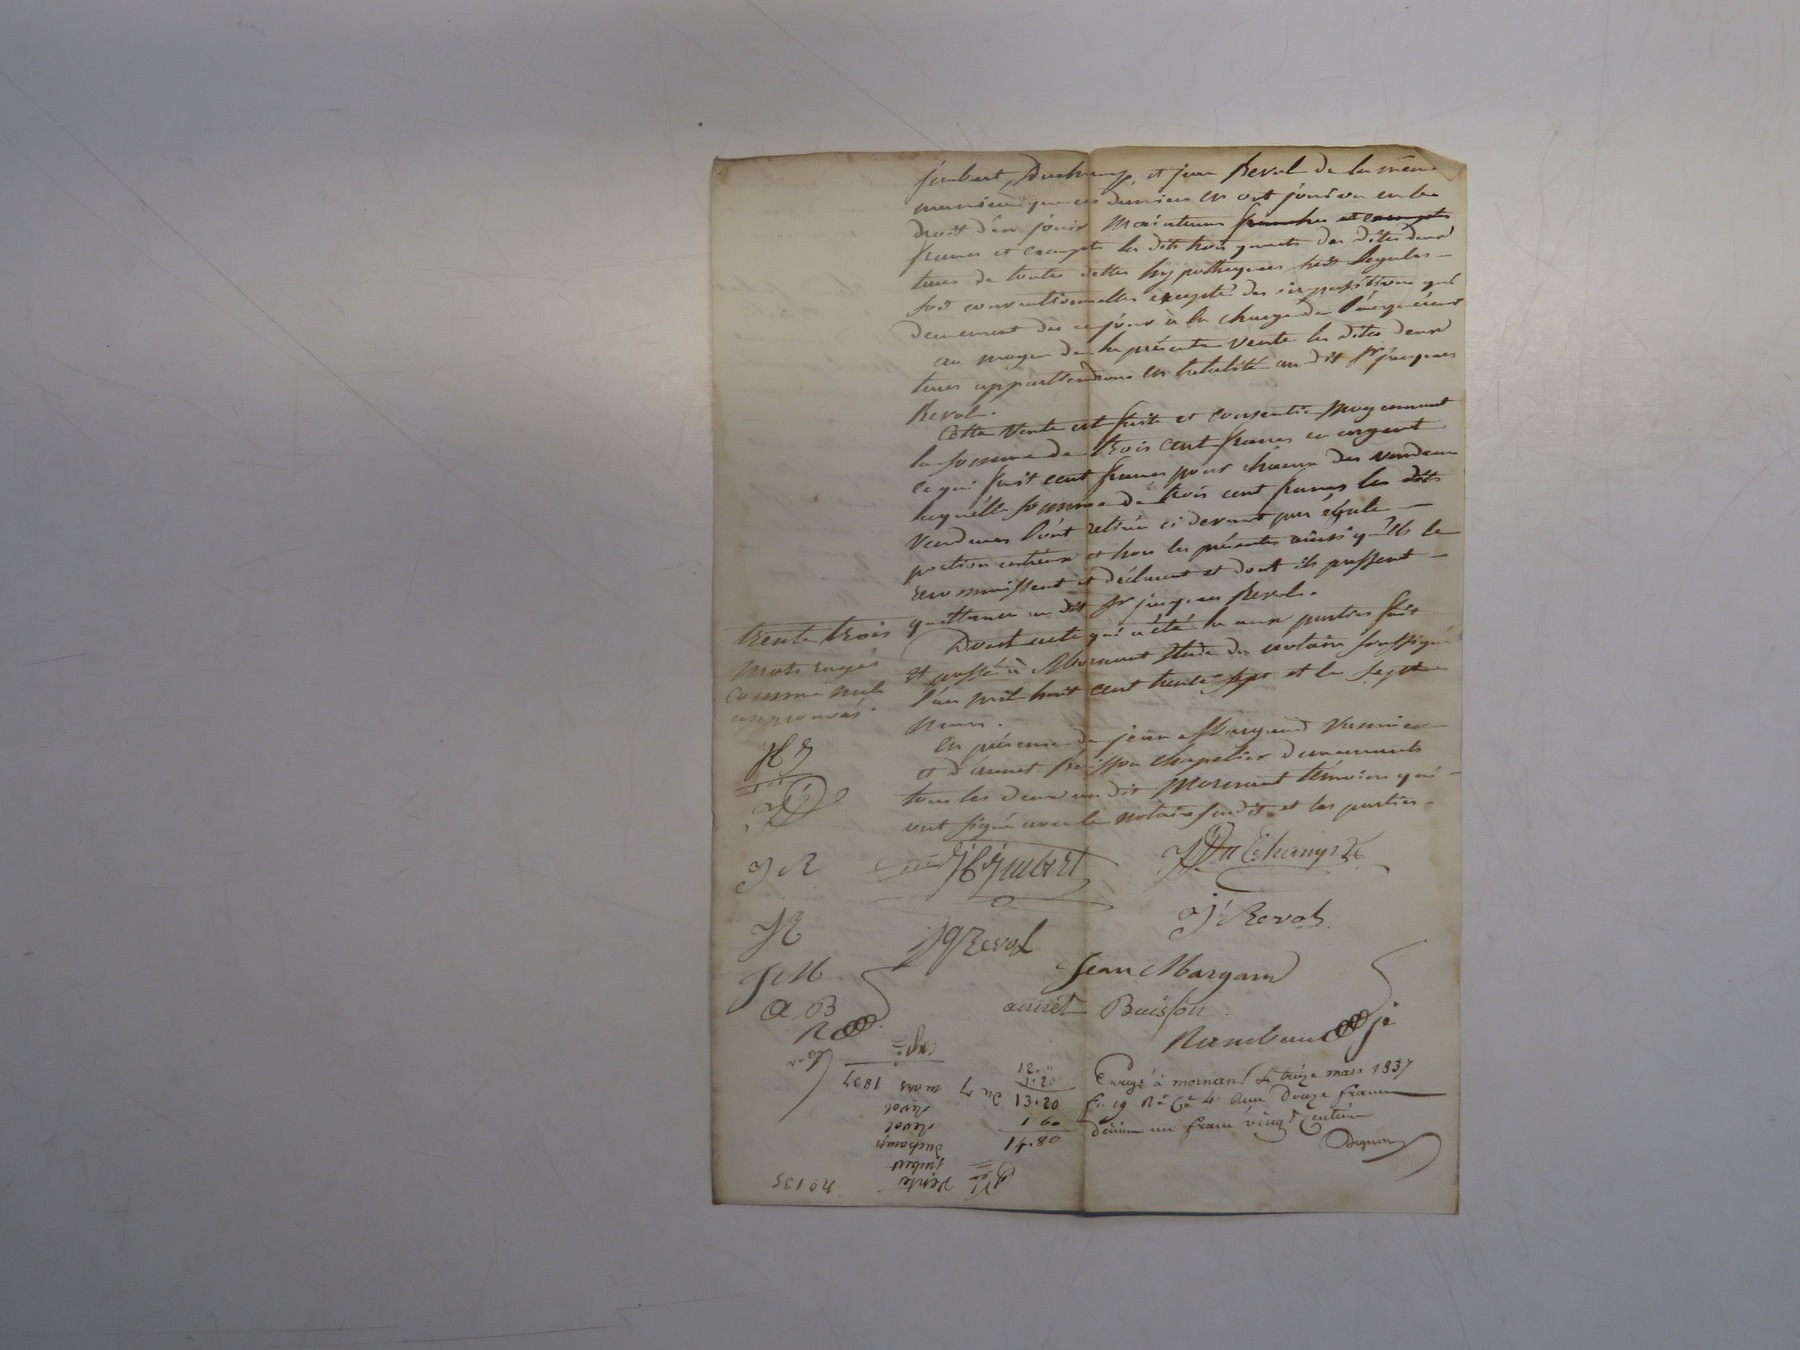 jimbert, Duchamp, et jean Revol de la même
manière que ces derniers en ont joui ou eu le
droit d'en jouir maintenus franches et exemptes
francs et exempts les dits trois quarts des dites deux
terres de toutes dettes hypotheques soit legales
soit conventionnelles excepté des impositions qui
demeurent dès ce jour à la charge de l'acquéreur
au moyen de la présente vente les dites deux
terres appartiendront en totalité au dit sr jacques
Revol.
Cette vente est faite et consentie moyennant
la somme de trois cent francs en argent
ce qui fait cent francs pour chacun des vendeurs
laquelle somme de trois cent francs les dits
vendeurs l'ont retirée ci devant par égale
portion entr'eux et hors les présentes ainsi qu'ils le
reconnaissent et déclarent et dont ils passent
quittance au dit sr jacques Revol.
Dont acte qui a été lu aux parties fait
et passé à Mornant étude du notaire soussigné
l'an mil huit cent trente sept et le sept
mars.
En présence de jean Margand
et d'annet Buisson chapelier demeurants
tous les deux au dit Mornant témoins qui
ont signé avec le notaire susdit et les parties.
trente trois
mots rayés
comme nuls
approuvés.
J R
J R
J M
a B
R
J Duchamp
J Revol
jq Revol
Jean Margand
annet Buisson
Rambaud
Enregé à mornant le treize mars 1837
fo 19 Ro Ce 4 Reçu Douze francs
décime un franc vingt centimes
12 "
1.20
13.20
1 60
14.80
No 135
Vente
jimbert
Duchamp
Revol
Revol
Du 7 mars 1837
expée